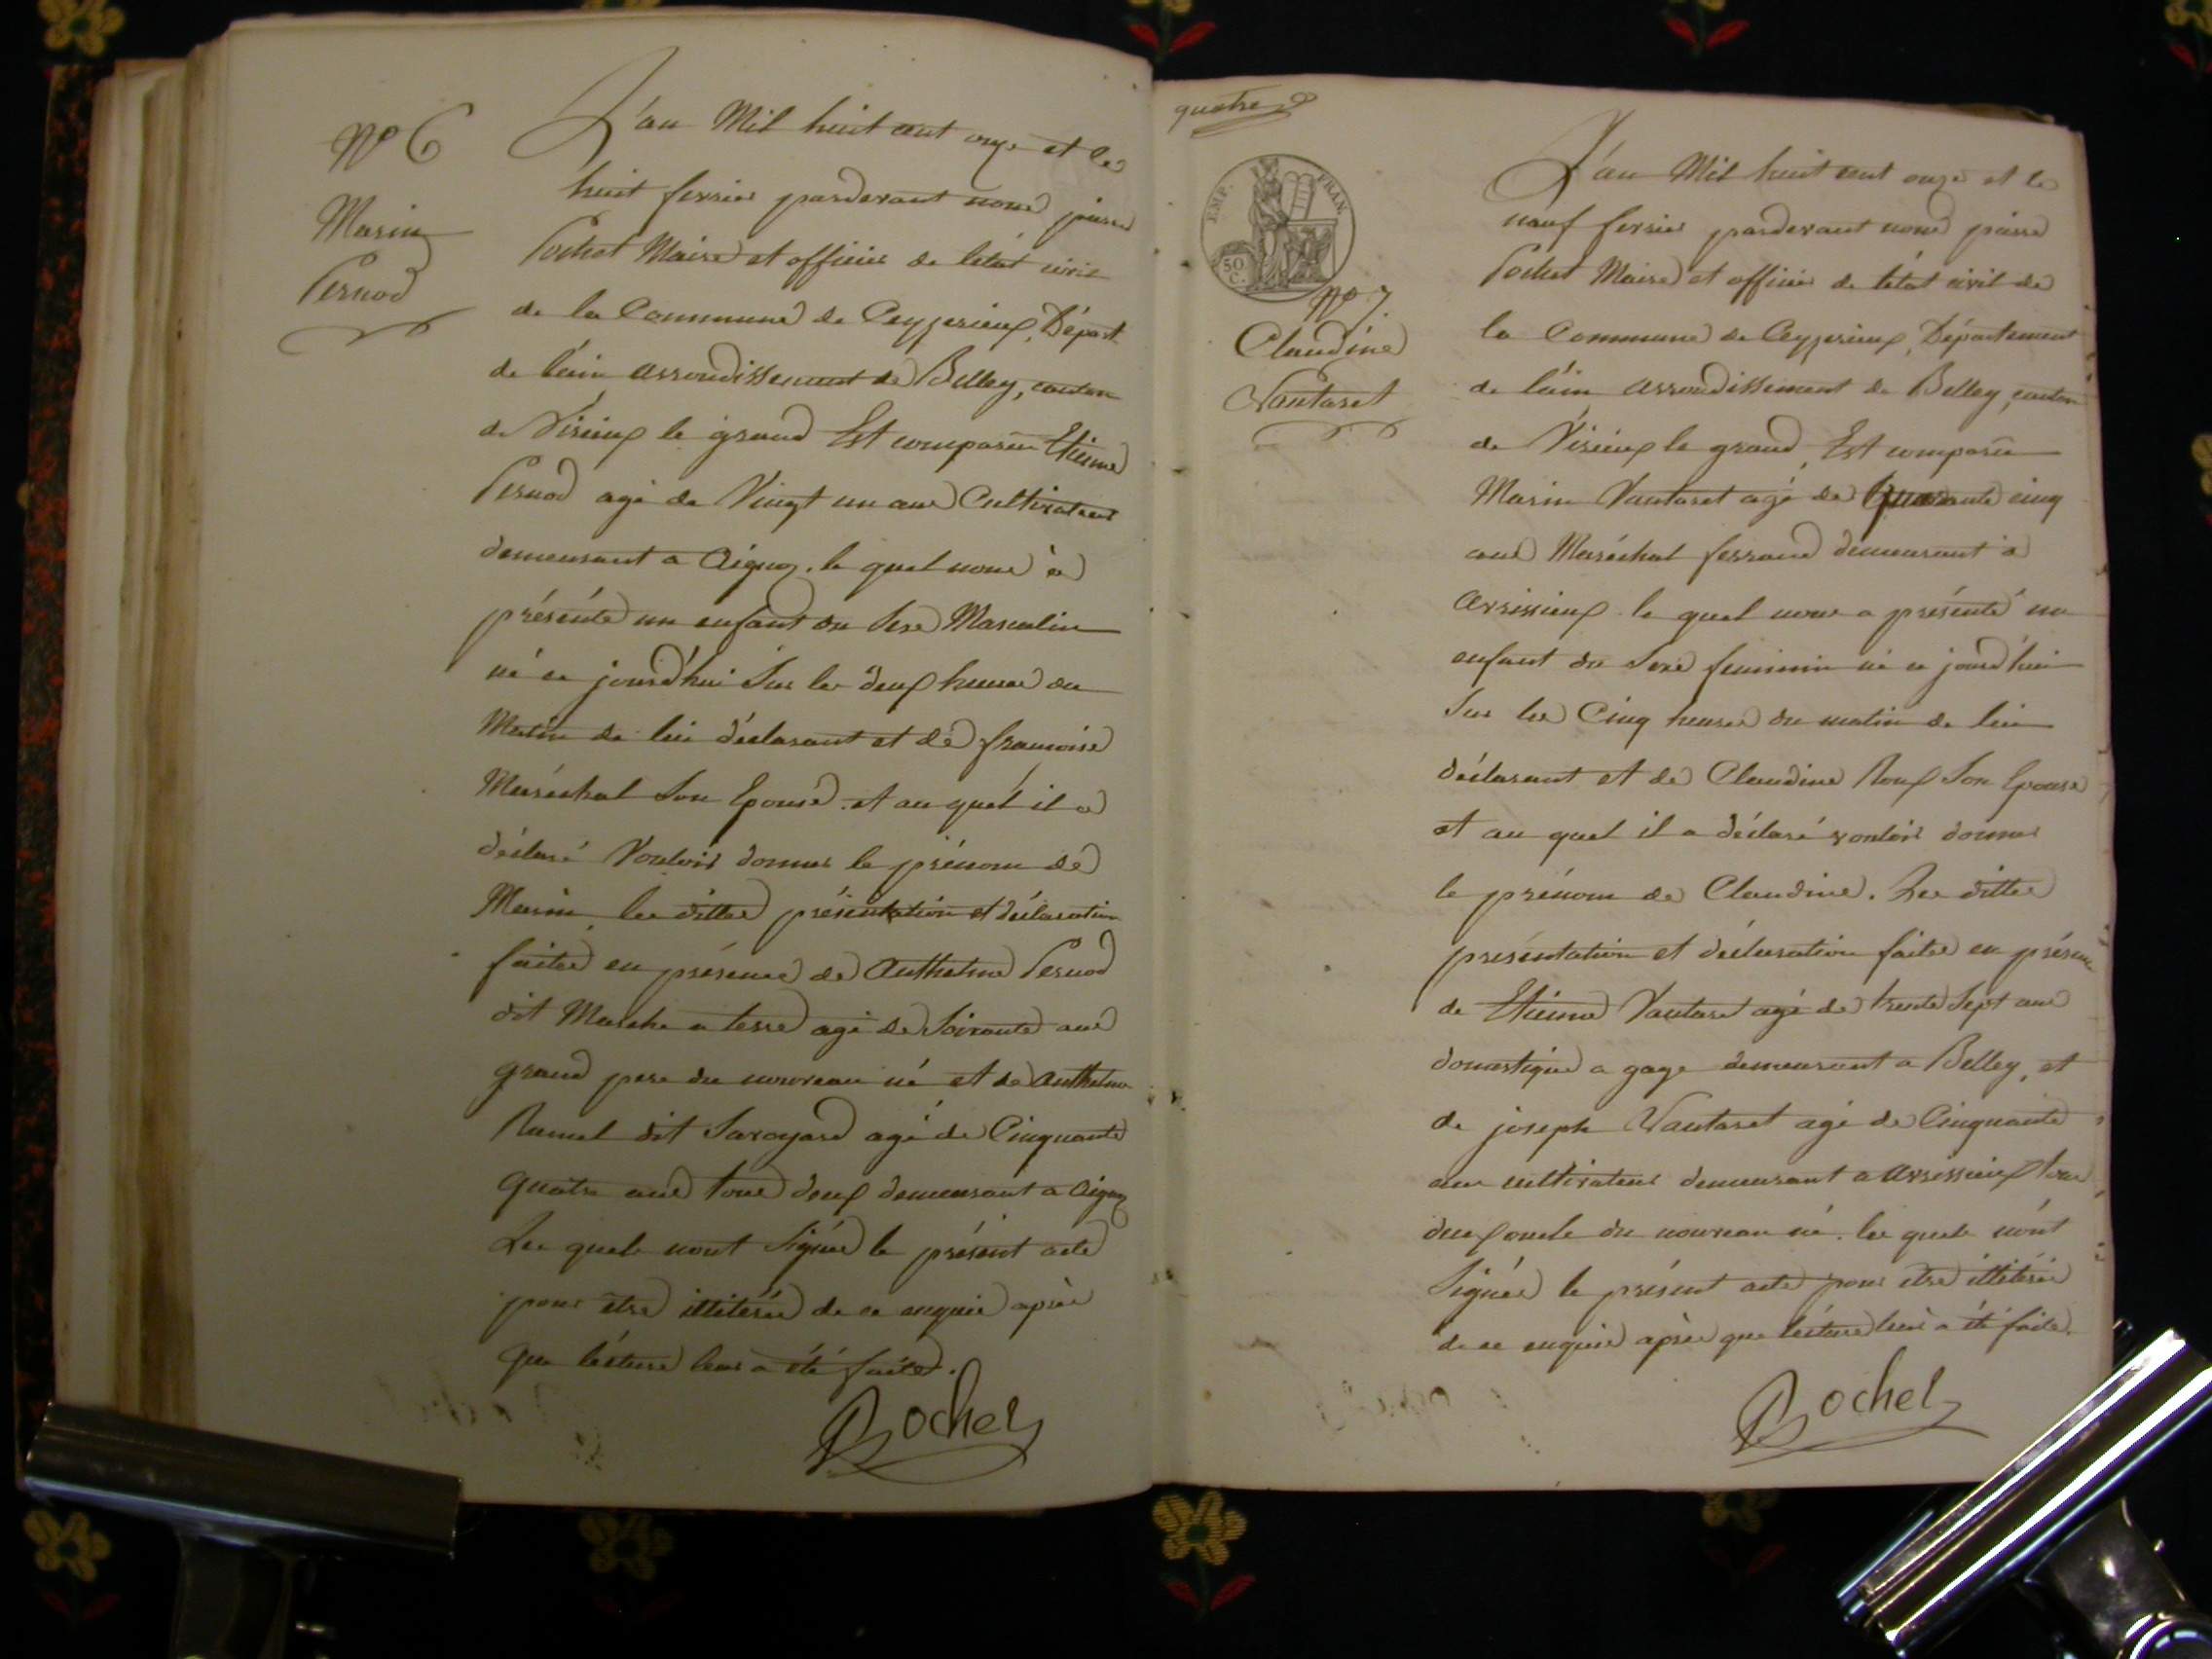 Nº 6
Marin
Pernod
L'an Mil huit cent onze et le
huit fevrier pardevant nous pierre
Pochet Maire et officier de létat civil
de la Commune de Ceyzerieux, Départ.
de l'ain arrondissement de Belley, canton
de Virieux le grand Est comparu Etienne
Pernod agé de Vingt un ans Cultivateur
demeurant a Aignoz. le quel nous à
présénté un enfant du Sexe Masculin
né ce jourd'hui Sur les deux heures du
Matin de lui déclarant et de francoise
Maréchal Son Epouse. et au quel il a
déclaré Vouloir donner le prénom de
Marin, les dittes présentation et déclaration
faites en présence de Anthelme Pernod
dit Marche a terre agé de Soixante ans
grand pere du nouveau né et de Anthelme
Ramel dit Savoyard agé de Cinquante
quatre ans tous deux demeurant a Aignoz
Les quels nont Signés le présent acte
pour etre illiterés de ce enquis après
que lécture leur a été faite.
Pochet
quatre
EMP. FRAN.
50 C.
Nº 7.
Claudine
Vautaret
L'an Mil huit cent onze et le
neuf fevrier pardevant nous pierre
Pochet Maire et officier de létat civil de
la Commune de Ceyzerieux, Département
de l'ain arrondissement de Belley, canton
de Virieux le grand, Est comparu
Marin Vautaret agé de Quarante cinq
ans Maréchal ferrand demeurant a
Avrissieux le quel nous a présénté un
enfant du Sexe feminin né ce jourd'hui
Sur les Cinq heures du matin de lui
déclarant et de Claudine Roux Son Epouse
et au quel il a déclaré vouloir donner
le prénom de Claudine. Les dittes
présentation et déclaration faites en présence
de Etienne Vautaret agé de trente Sept ans
domestique a gage demeurant a Belley, et
de joseph Vautaret agé de Cinquante
ans cultivateur demeurant a Avrissieux tous
deux oncle du nouveau né. les quels n'ont
Signés le présent acte pour etre illiterés
de ce enquis après que lécture leur a été faite.
Pochet